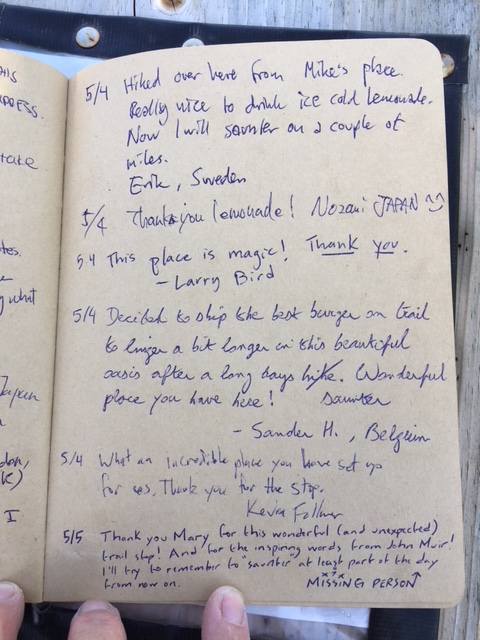 HIS
DRESS.
take
tes.
g what
Japan
don,
K)
I
5/4 Hiked over here from Mike's place.
Really nice to drink ice cold lemonade.
Now I will saunter on a couple of
miles.
Erik, Sweden
5/4 Thank you lemonade! Nozomi JAPAN
5 4 This place is magic! Thank you.
- Larry Bird
5/4 Decided to skip the best burger on trail
to linger a bit longer in this beautiful
oasis after a long days hike. Wonderful
saunter
place you have here!
- Sander H., Belgium
5/4 What an incredible place you have set up
for us. Thank you for the stop.
Kevin
5/5 Thank you Mary for this wonderful (and unexpected)
trail stop! And for the inspiring words from John Muir!
I'll try to remember to "saunter" at least part of the day
from now on. MISSING PERSON